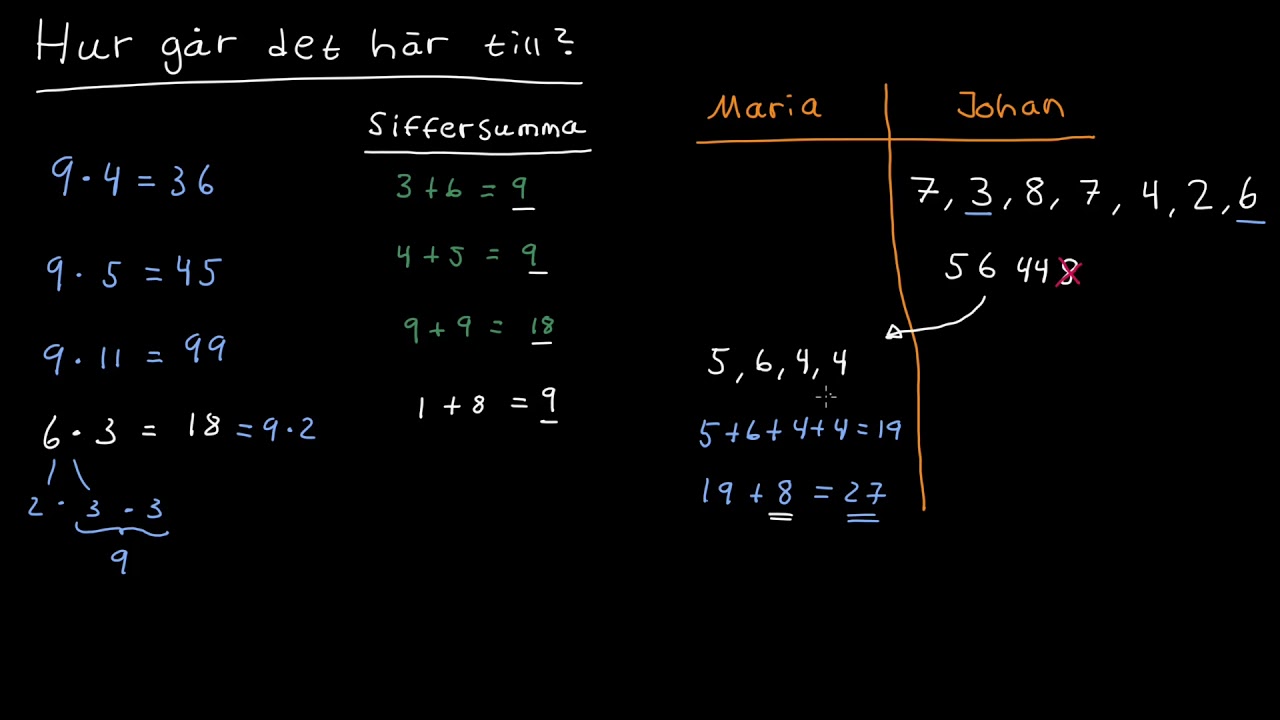 Hur går det här till?
Siffersumma
9 · 4 = 36
3 + 6 = 9
9 · 5 = 45
4 + 5 = 9
9 · 11 = 99
9 + 9 = 18
6 · 3 = 18 = 9 · 2
1 + 8 = 9
2 · 3 · 3
9
Maria Johan
7, 3, 8, 7, 4, 2, 6
56 448
5, 6, 4, 4
5 + 6 + 4 + 4 = 19
19 + 8 = 27